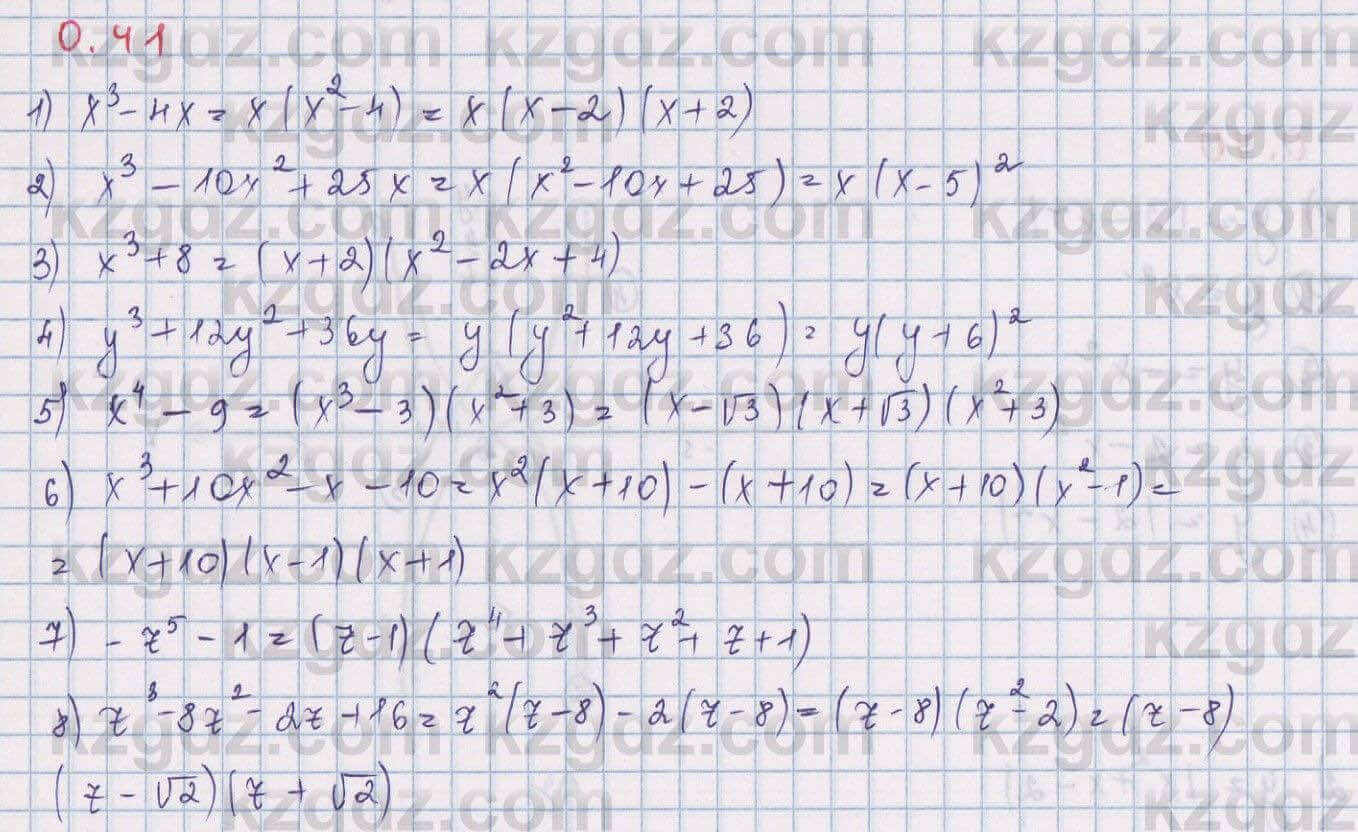 0.41
1) x³ - 4x = x(x² - 4) = x(x - 2)(x + 2)
2) x³ - 10x² + 25x = x(x² - 10x + 25) = x(x - 5)²
3) x³ + 8 = (x + 2)(x² - 2x + 4)
4) y³ + 12y² + 36y = y(y² + 12y + 36) = y(y + 6)²
5) x⁴ - 9 = (x³ - 3)(x² + 3) = (x - √3)(x + √3)(x² + 3)
6) x³ + 10x² - x - 10 = x²(x + 10) - (x + 10) = (x + 10)(x² - 1) =
= (x + 10)(x - 1)(x + 1)
7) - z⁵ - 1 = (z - 1)(z⁴ + z³ + z² + z + 1)
8) z³ - 8z² - 2z + 16 = z²(z - 8) - 2(z - 8) = (z - 8)(z² - 2) = (z - 8)
(z - √2)(z + √2)
kzgdz.com